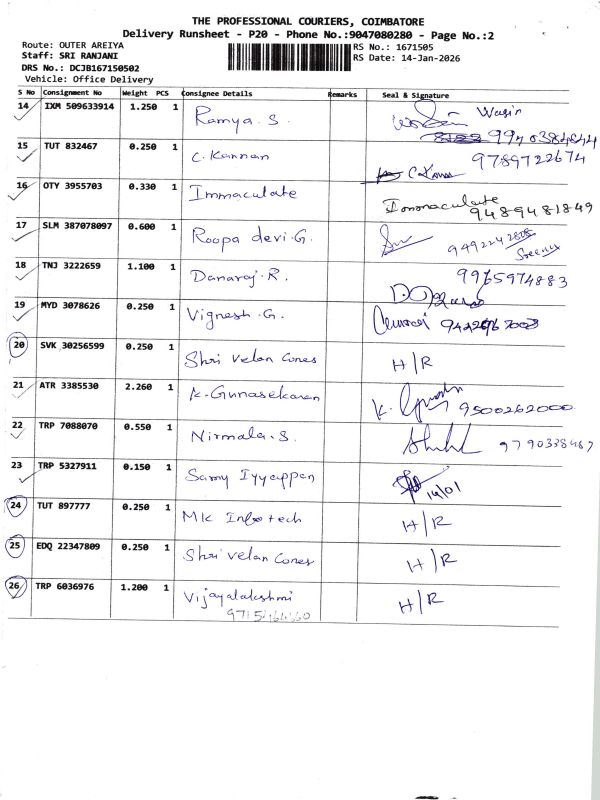 THE PROFESSIONAL COURIERS, COIMBATORE
Delivery Runsheet - P20 - Phone No.:9047080280 - Page No.:2
Route: OUTER AREIYA
RS No.: 1671505
Staff: SRI RANJANI
RS Date: 14-Jan-2026
DRS No.: DCJB167150502
Vehicle: Office Delivery
S No Consignment No Weight PCS Consignee Details Remarks Seal & Signature
14 IXM 509633914 1.250 1 Ramya. S. Wasir
15 TUT 832467 0.250 1 C. Kannan 9789722674
16 OTY 3955703 0.330 1 Immaculate Immaculate 9489481849
17 SLM 387078097 0.600 1 Roopa devi. G.
18 TNJ 3222659 1.100 1 Danaraj. R. 9965974883
19 MYD 3078626 0.250 1 Vignesh. G.
20 SVK 30256599 0.250 1 Shri Velan Cones H/R
21 ATR 3385530 2.260 1 K. Gunasekaran K. 9500262000
22 TRP 7088070 0.550 1 Nirmala. S.
23 TRP 5327911 0.150 1 Samy Iyyappan 14/01
24 TUT 897777 0.250 1 MK Infotech H/R
25 EDQ 22347809 0.250 1 Shri Velan Cones H/R
26 TRP 6036976 1.200 1 Vijayalakshmi H/R